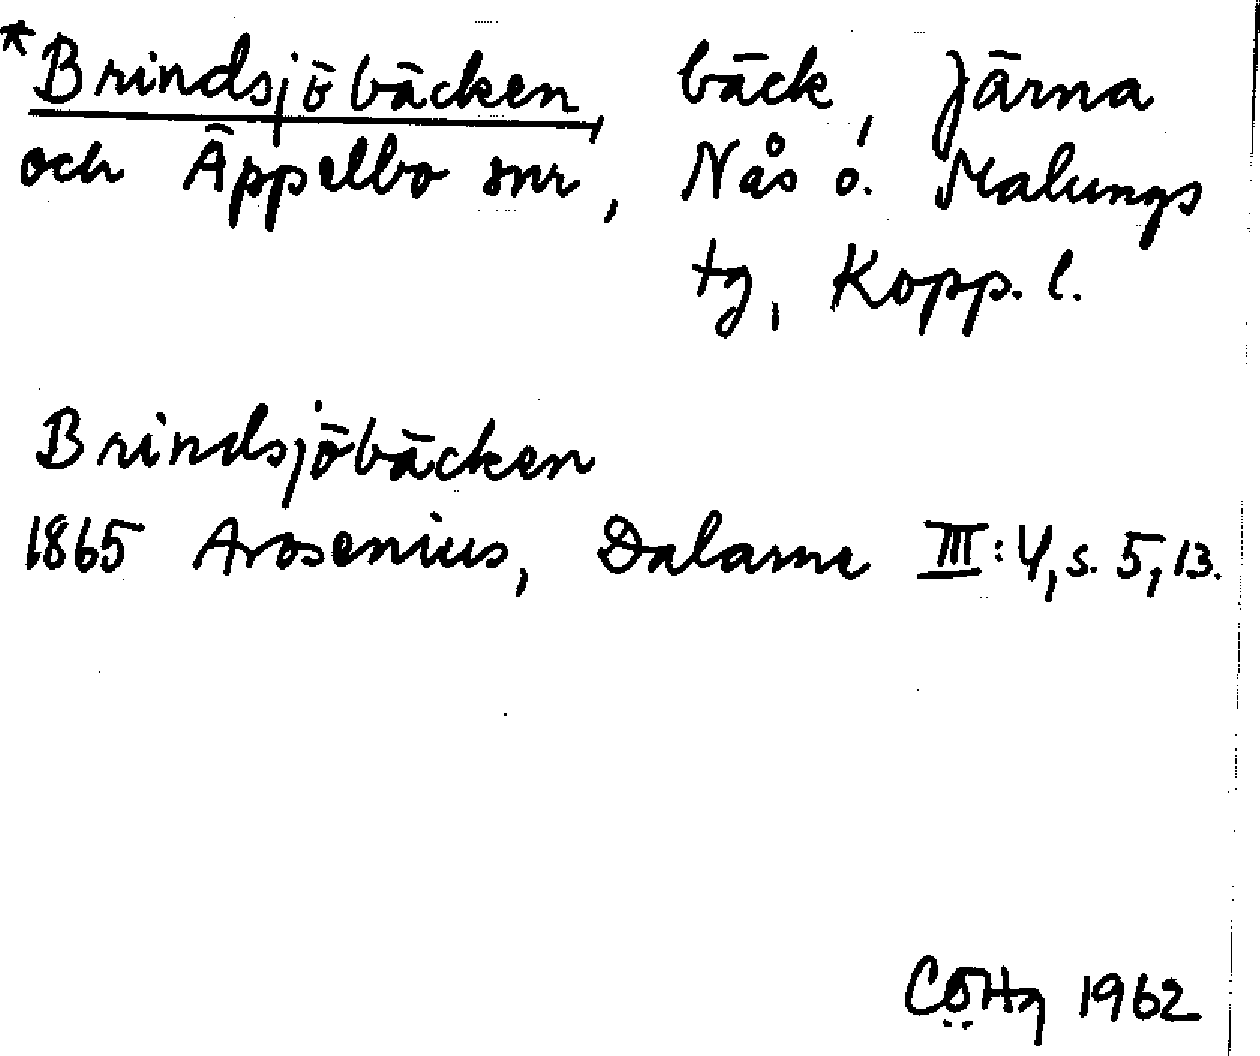 *Brindsjöbäcken, bäck, Järna
och Äppelbo snr, Nås o. Malungs
tg, Kopp. l.
Brindsjöbäcken
1865 Arosenius, Dalarne III:4, s. 5, 13.
1962